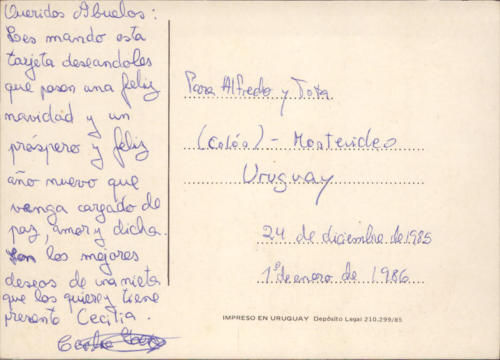 Queridos Abuelos:
Les mando esta
tarjeta deseandoles
que pasen una feliz
navidad y un
próspero y feliz
año nuevo que
venga cargado de
paz, amor y dicha.
Son los mejores
deseos de una nieta
que los quiere y tiene
presente Cecilia.
Para Alfredo y Tota
(Colón) - Montevideo
Uruguay
24 de diciembre de 1985
1º de enero de 1986
IMPRESO EN URUGUAY Depósito Legal 210.299/85